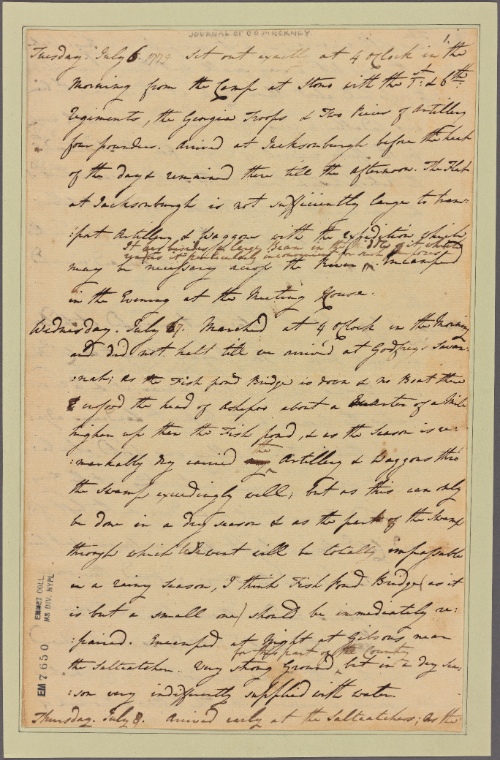 JOURNAL OF C C PINCKNEY
1.
Tuesday. July 6. 1772 Set out early at 4 o'Clock in the
Morning from the Camp at Stono with the 1st: & 6th:
Regiments, the Georgia Troops & Two Pieces of Artillery
four pounders. arrived at Jacksonburgh before the heat
of the day & remained there till the afternoon. The Flat
at Jacksonburgh is not sufficiently large to tran:
:sport Artillery & Waggons with the expedition which
It has besides a large Beam in the middle of it which
renders it particularly inconvenient for such
may be necessary across the River. Incamped
in the Evening at the Meeting House.
Wednesday. July 7. Marched at 4 o'Clock in the Morning
and did not halt till we arrived at Godfrey's Savan:
:nah; as the Fish pond Bridge is down & no Boat there
I crossed the head of Ashepoo about a Quarter of a Mile
higher up than the Fish pond, & as the Season is re:
:markably dry carried the Artillery & Waggons thro'
the Swamp exceedingly well; but as this can only
be done in a dry season & as the part of the Swamp
through which I went will be totally impassable
in a rainy season, I think Fish pond Bridge (as it
is but a small one) should be immediately re:
:paired. Incamped at Night at Gibson's, near
for this part of the Country
the Saltcatcher. Very strong Ground, but in a dry Sea:
:son very indifferently supplied with water.
Thursday. July 8. arrived early at the Saltcatchers; as the
EM 7650
EMMET COLL.
MS DIV. NYPL